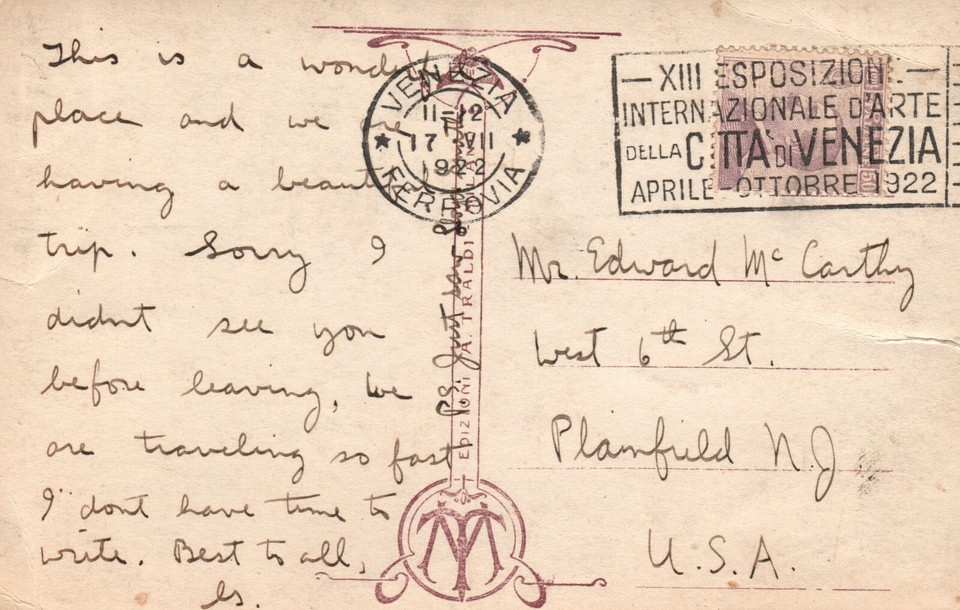 This is a wonderful
place and we are
having a beautiful
trip. Sorry I
didnt see you
before leaving, We
are traveling so fast
I dont have time to
write. Best to all,
Is.
P.S. Just saw
EDIZIONI A. TRALDI MILANO
VENEZIA
11-12
17 VII
1922
FERROVIA
XIII ESPOSIZIONE
INTERNAZIONALE D'ARTE
DELLA CITTÀ DI VENEZIA
APRILE-OTTOBRE 1922
50
Mr. Edward McCarthy
West 6th St.
Plainfield N.J
U.S.A.